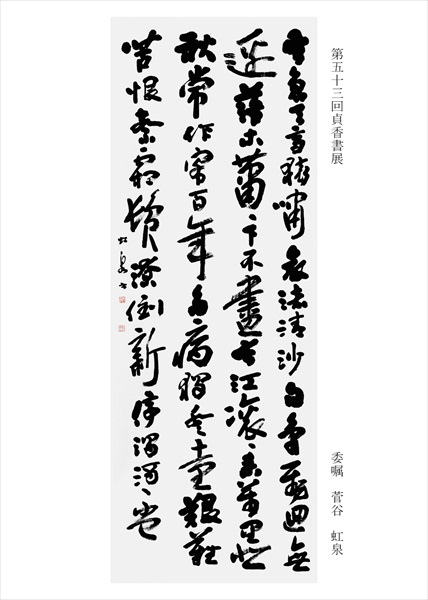 第五十三回貞香書展
委嘱　菅谷　虹泉
風急天高猿嘯哀渚清沙白鳥飛廻無
邊落木蕭々下不盡長江滾々來萬里悲
秋常作客百年多病獨登臺艱難
苦恨繁霜鬢潦倒新停濁酒杯
虹泉書